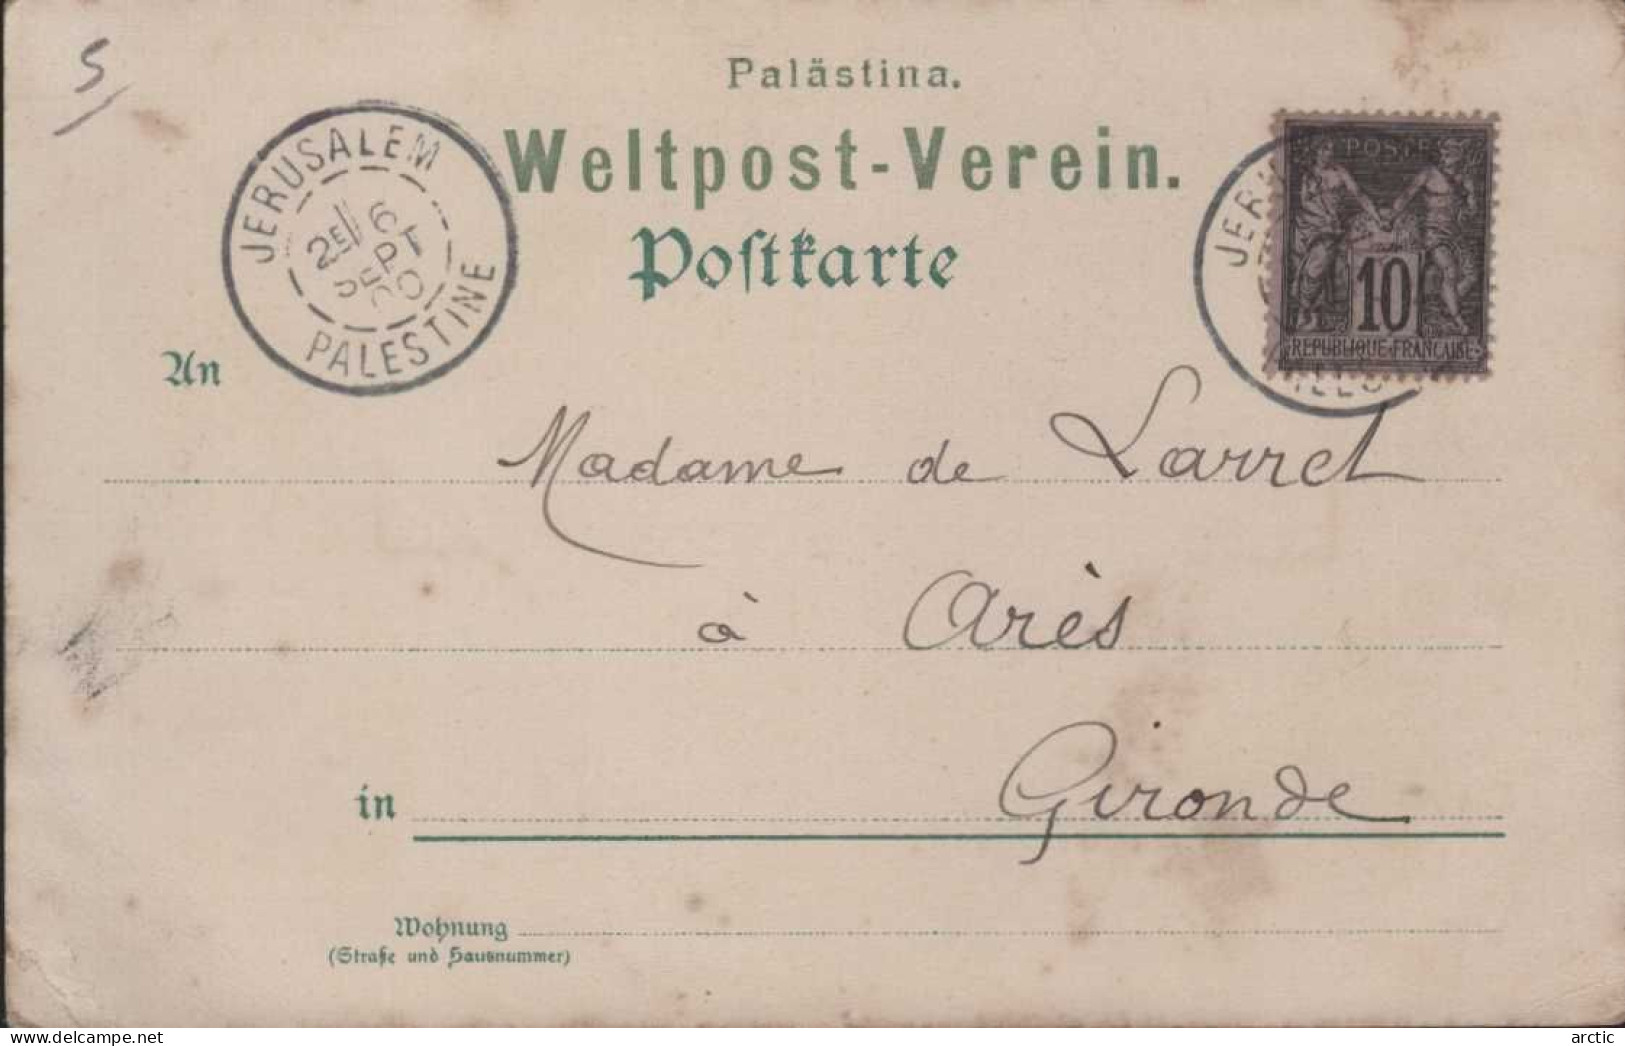 5
Palästina.
Weltpost-Verein.
Postkarte
JERUSALEM
2E 6
SEPT
00
PALESTINE
POSTE
10
REPUBLIQUE FRANCAISE
An
Madame de Larret
à Arès
in Gironde
Wohnung
(Straße und Hausnummer)
www.delcampe.net
arctic